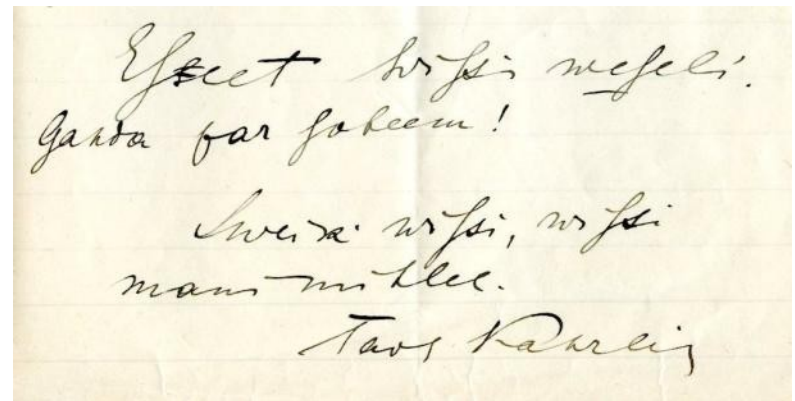 Eſseet wiſsi weſeli.
Gahda par ſobeem!
Sweiki wiſsi, wiſsi
mani mihlee.
Kahrliņ